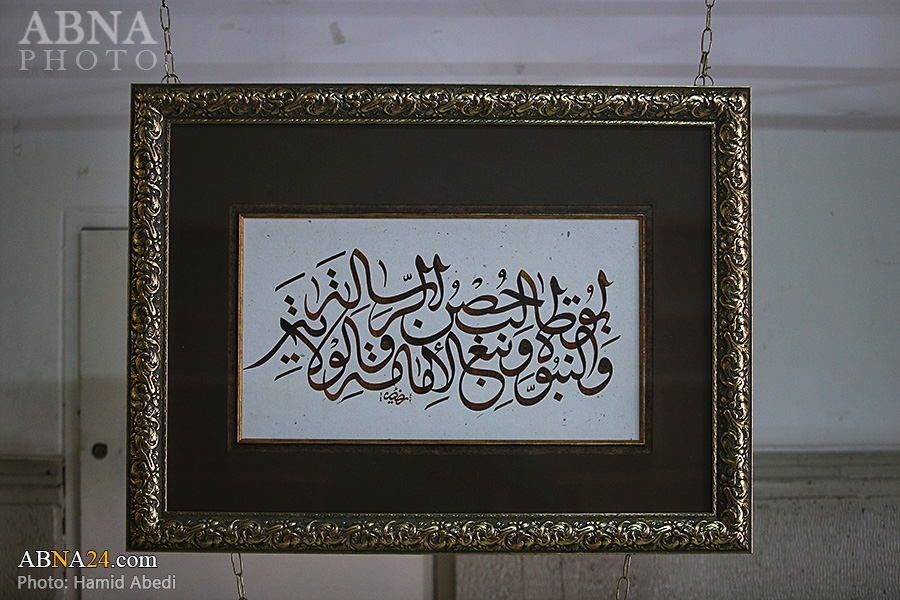 ABNA
PHOTO
ابوطالب حُصْن الرّسالة
والنبوّة ونبع الإمامة والولاية
ABNA24.com
Photo: Hamid Abedi